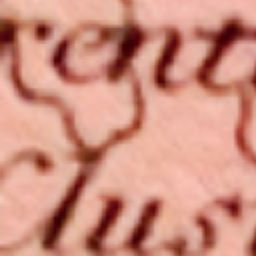 rent
Clus